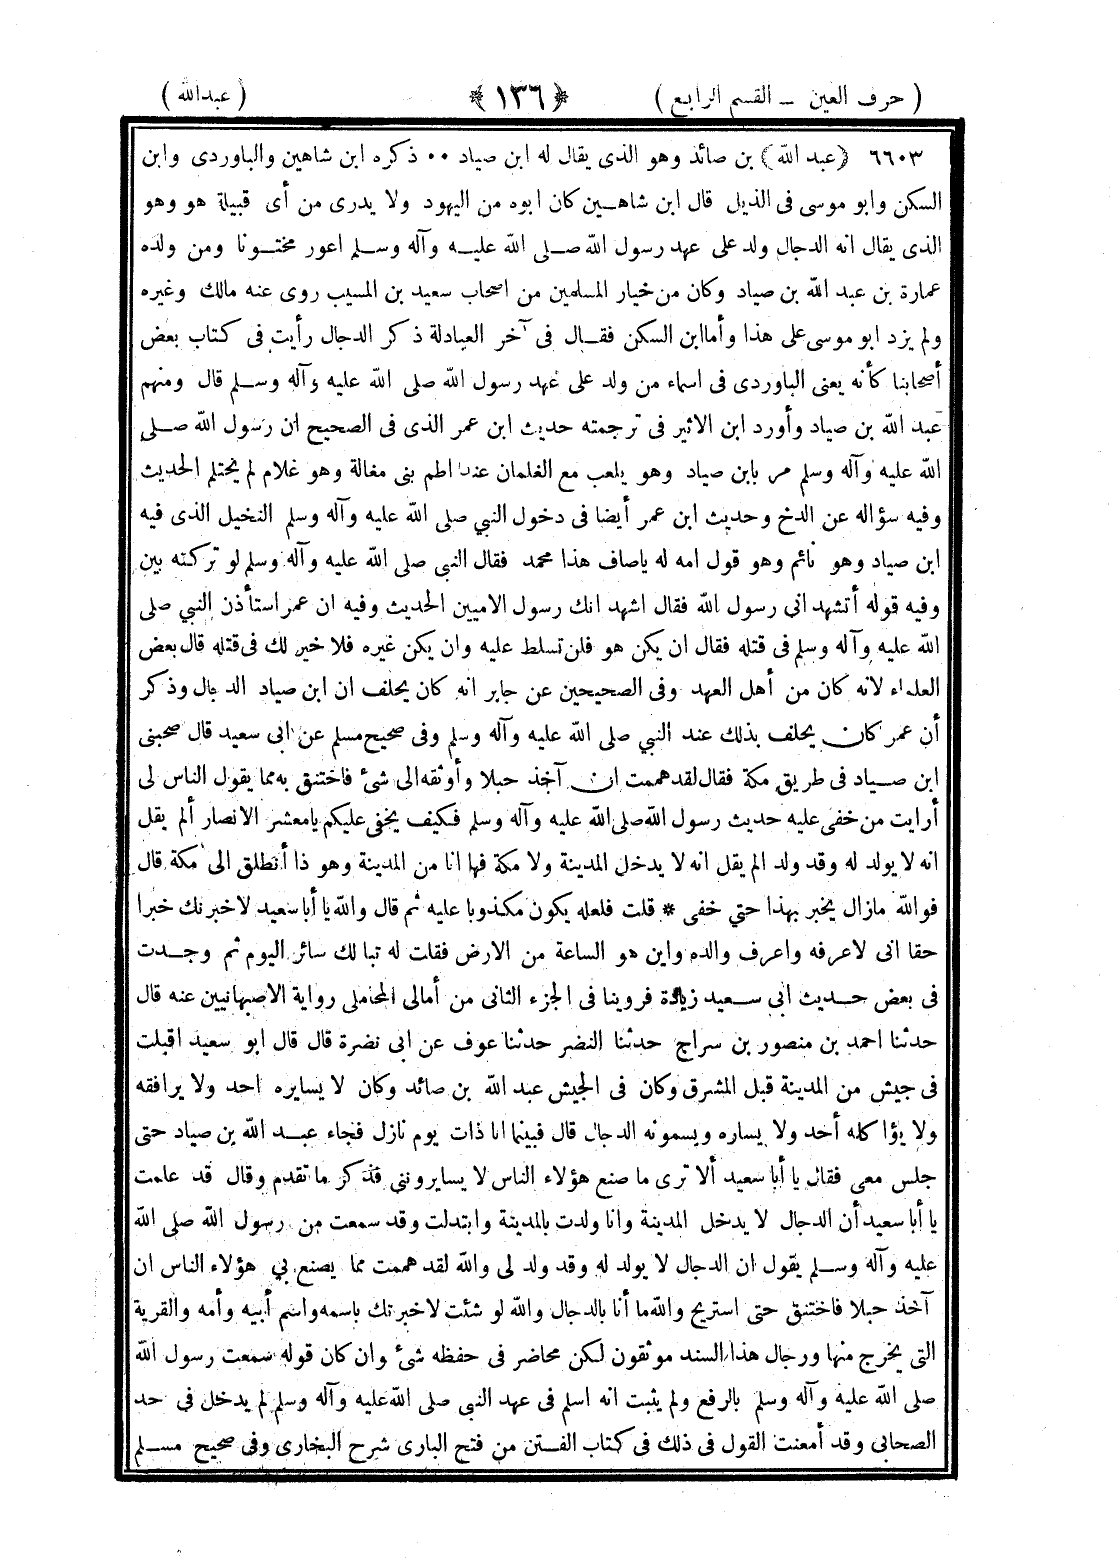 ( حرف العين – القسم الرابع ) ﴿١٣٦﴾ ( عبدالله )
٦٦٠٣ ﴿عبد الله﴾ بن صائد وهو الذى يقال له ابن صياد ٠٠ ذكره ابن شاهين والباوردى وابن
السكن وابو موسى فى الذيل قال ابن شاهين كان ابوه من اليهود ولا يدرى من أى قبيلة هو وهو
الذى يقال انه الدجال ولد على عهد رسول الله صلى الله عليه وآله وسلم اعور مختونا ومن ولده
عمارة بن عبد الله بن صياد وكان من خيار المسلمين من اصحاب سعيد بن المسيب روى عنه مالك وغيره
ولم يزد ابو موسى على هذا وأما ابن السكن فقال فى آخر العبادلة ذكر الدجال رأيت فى كتاب بعض
أصحابنا كأنه يعنى الباوردى فى اسماء من ولد على عهد رسول الله صلى الله عليه وآله وسلم قال ومنهم
عبد الله بن صياد وأورد ابن الاثير فى ترجمته حديث ابن عمر الذى فى الصحيح ان رسول الله صلى
الله عليه وآله وسلم مر بابن صياد وهو يلعب مع الغلمان عند اطم بنى مغالة وهو غلام لم يحتلم الحديث
وفيه سؤاله عن الدخ وحديث ابن عمر أيضا فى دخول النبي صلى الله عليه وآله وسلم النخيل الذى فيه
ابن صياد وهو نائم وهو قول امه له ياصاف هذا محمد فقال النبي صلى الله عليه وآله وسلم لو تركته بين
وفيه قوله أتشهد انى رسول الله فقال اشهد انك رسول الاميين الحديث وفيه ان عمر استأذن النبي صلى
الله عليه وآله وسلم فى قتله فقال ان يكن هو فلن تسلط عليه وان يكن غيره فلا خير لك فى قتله قال بعض
العلماء لانه كان من أهل العهد وفى الصحيحين عن جابر انه كان يحلف ان ابن صياد الدجال وذكر
أن عمر كان يحلف بذلك عند النبي صلى الله عليه وآله وسلم وفى صحيح مسلم عن ابى سعيد قال صحبنى
ابن صياد فى طريق مكة فقال لقد هممت ان آخذ حبلا وأوثقه الى شئ فاختنق به مما يقول الناس لى
أرايت من خفى عليه حديث رسول الله صلى الله عليه وآله وسلم فكيف يخفى عليكم يا معشر الانصار ألم يقل
انه لا يولد له وقد ولد الم يقل انه لا يدخل المدينة ولا مكة فها انا من المدينة وهو ذا أنطلق الى مكة قال
فوالله مازال يخبر بهذا حتي خفى * قلت فلعله يكون مكذوبا عليه ثم قال والله يا أبا سعيد لاخبرنك خبرا
حقا انى لاعرفه واعرف والده واين هو الساعة من الارض فقلت له تبا لك سائر اليوم ثم وجدت
فى بعض حديث ابى سعيد زيادة فروينا فى الجزء الثانى من أمالى المحاملى رواية الاصبهانيين عنه قال
حدثنا احمد بن منصور بن سراج حدثنا النضر حدثنا عوف عن ابى نضرة قال قال ابو سعيد اقبلت
فى جيش من المدينة قبل المشرق وكان فى الجيش عبد الله بن صائد وكان لا يسايره احد ولا يرافقه
ولا يؤاكله أحد ولا يساره ويسمونه الدجال قال فبينما انا ذات يوم نازل فجاء عبد الله بن صياد حتى
جلس معى فقال يا أبا سعيد ألا ترى ما صنع هؤلاء الناس لا يسايروننى فذكر ما تقدم وقال قد علمت
يا أبا سعيد أن الدجال لا يدخل المدينة وانا ولدت بالمدينة وابتدلت وقد سمعت من رسول الله صلى الله
عليه وآله وسلم يقول ان الدجال لا يولد له وقد ولد لى والله لقد هممت مما يصنع بي هؤلاء الناس ان
آخذ حبلا فاختنق حتى استريح والله ما أنا بالدجال والله لو شئت لاخبرتك باسمه واسم أبيه وأمه والقرية
التى يخرج منها ورجال هذا السند موثقون لكن محاضر فى حفظه شئ وان كان قوله سمعت رسول الله
صلى الله عليه وآله وسلم بالرفع ولم يثبت انه اسلم فى عهد النبى صلى الله عليه وآله وسلم لم يدخل فى حد
الصحابى وقد أمعنت القول فى ذلك فى كتاب الفتن من فتح البارى شرح البخارى وفى صحيح مسلم